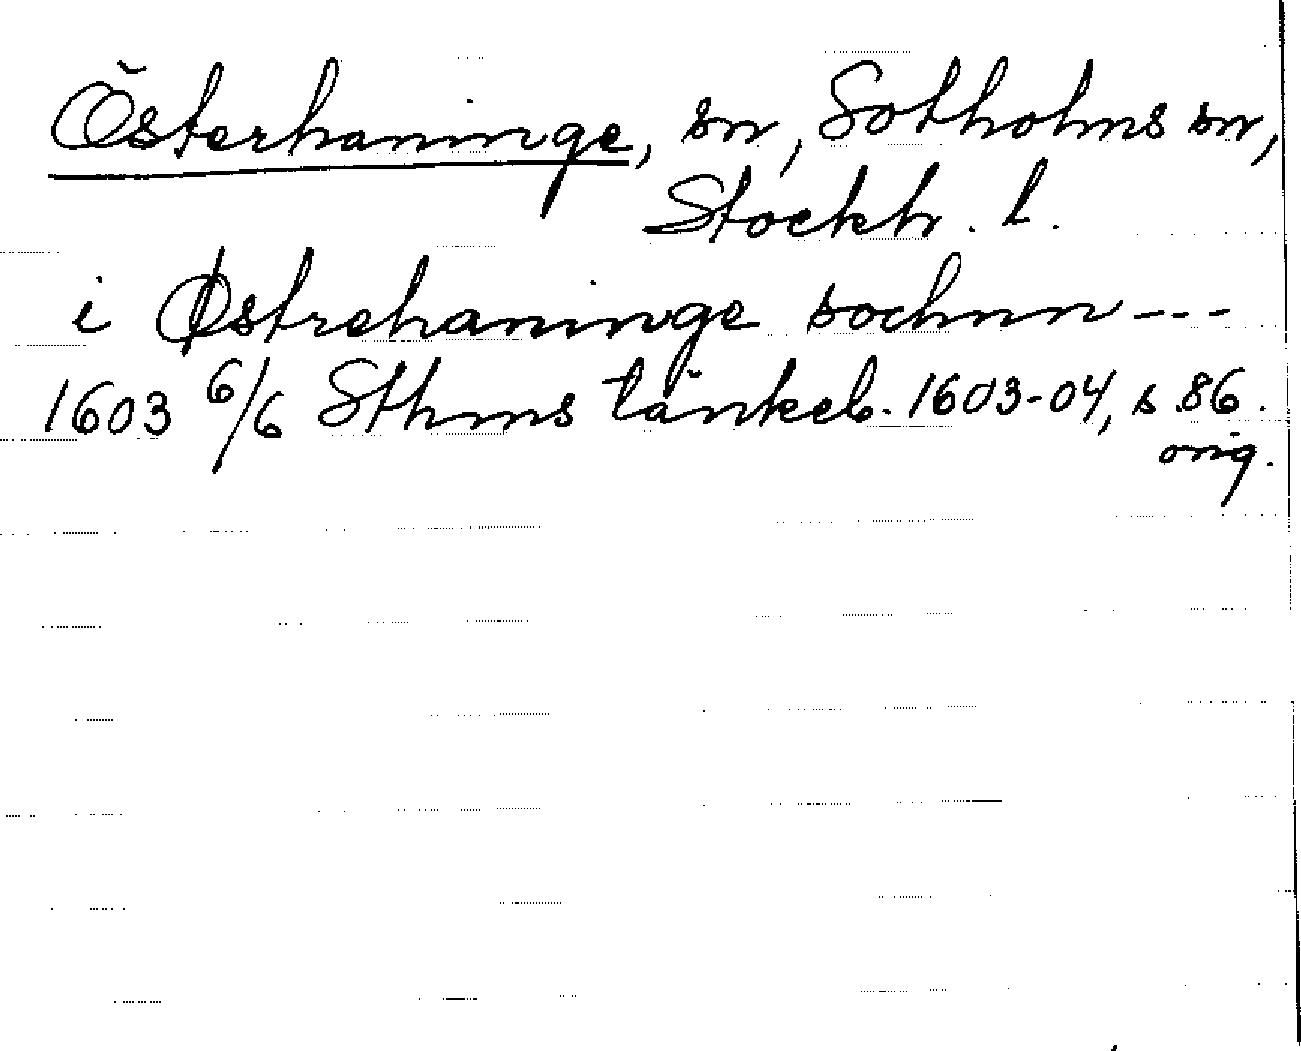 Österhaninge, sn, Sotholms sn,
Stockh. l.
i Østrehaninge sochnn ---
1603 6/6 Sthms tänkeb. 1603-04, s 86.
orig.